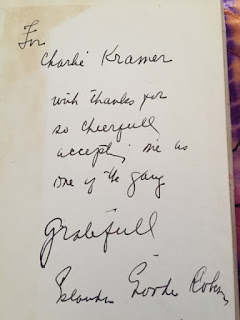 For
Charlie Kramer
with thanks for
so cheerfull
accepting me as
one of the gang
Gratefull